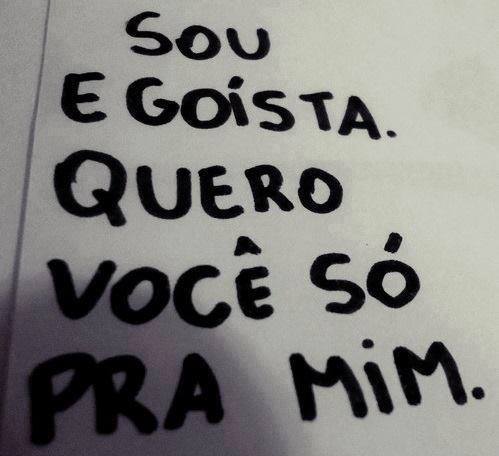 SOU
EGOÍSTA.
QUERO
VOCÊ SÓ
PRA MIM.